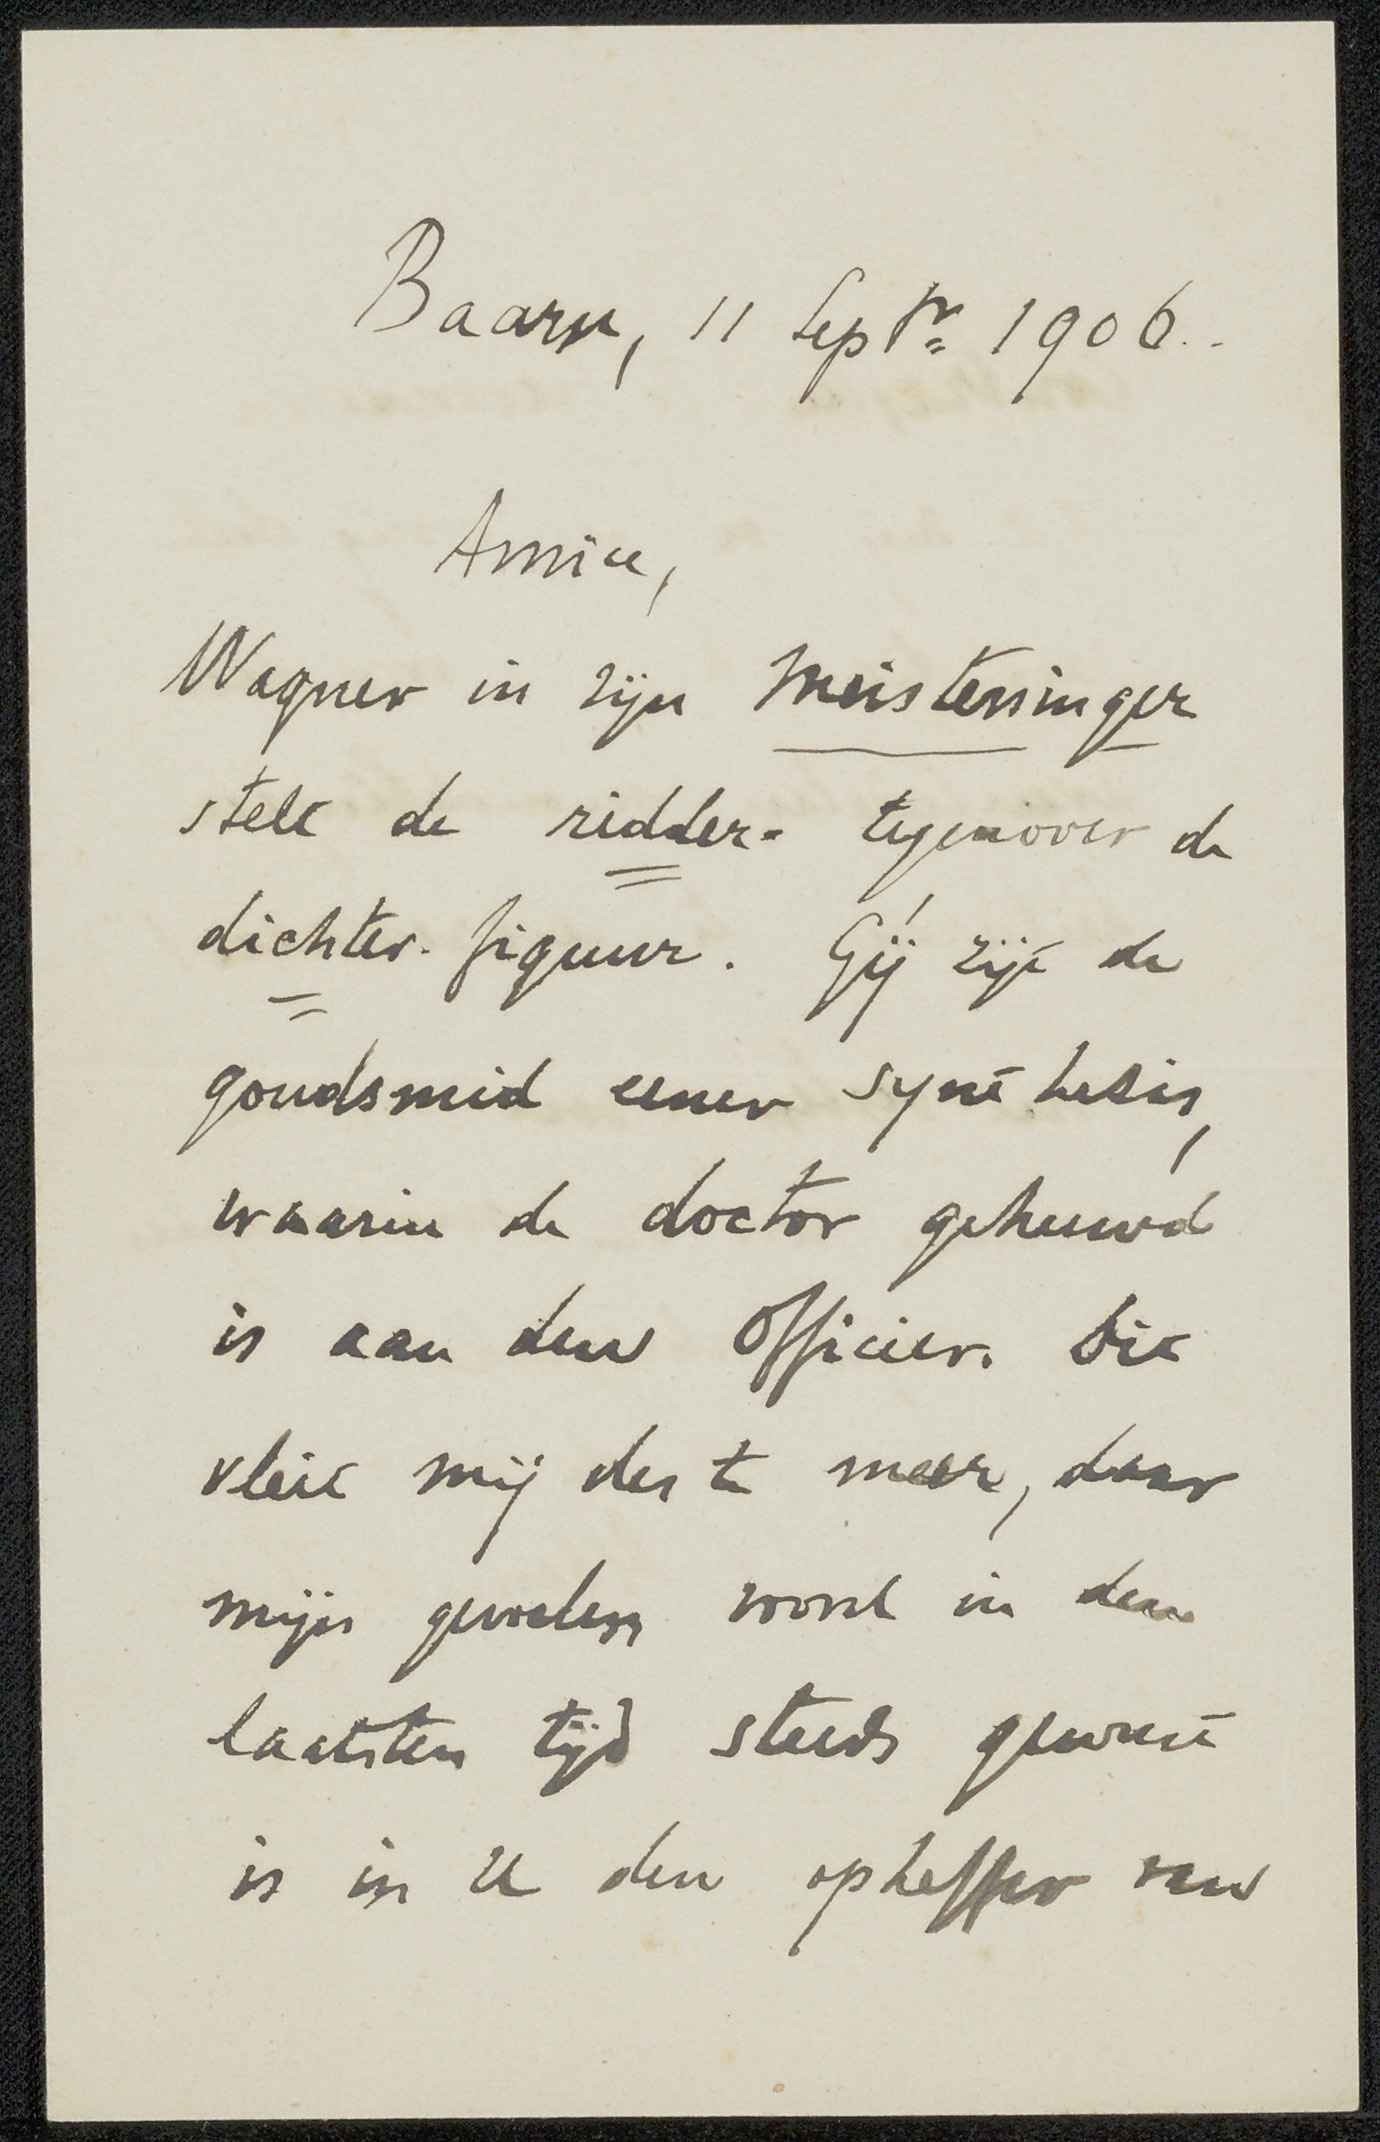 Baarn, 11 Septr 1906.
Amice,
Wagner in zijn Meistersinger
stelt de ridder- tegenover de
dichter-figuur. Gij zijt de
goudsmid eener synthesis,
waarin de doctor gehuwd
is aan den Officier. Dit
vleit mij des te meer, daar
mijn gevoelen rond in den
laatsten tijd steeds geweest
is in U den opheffer van